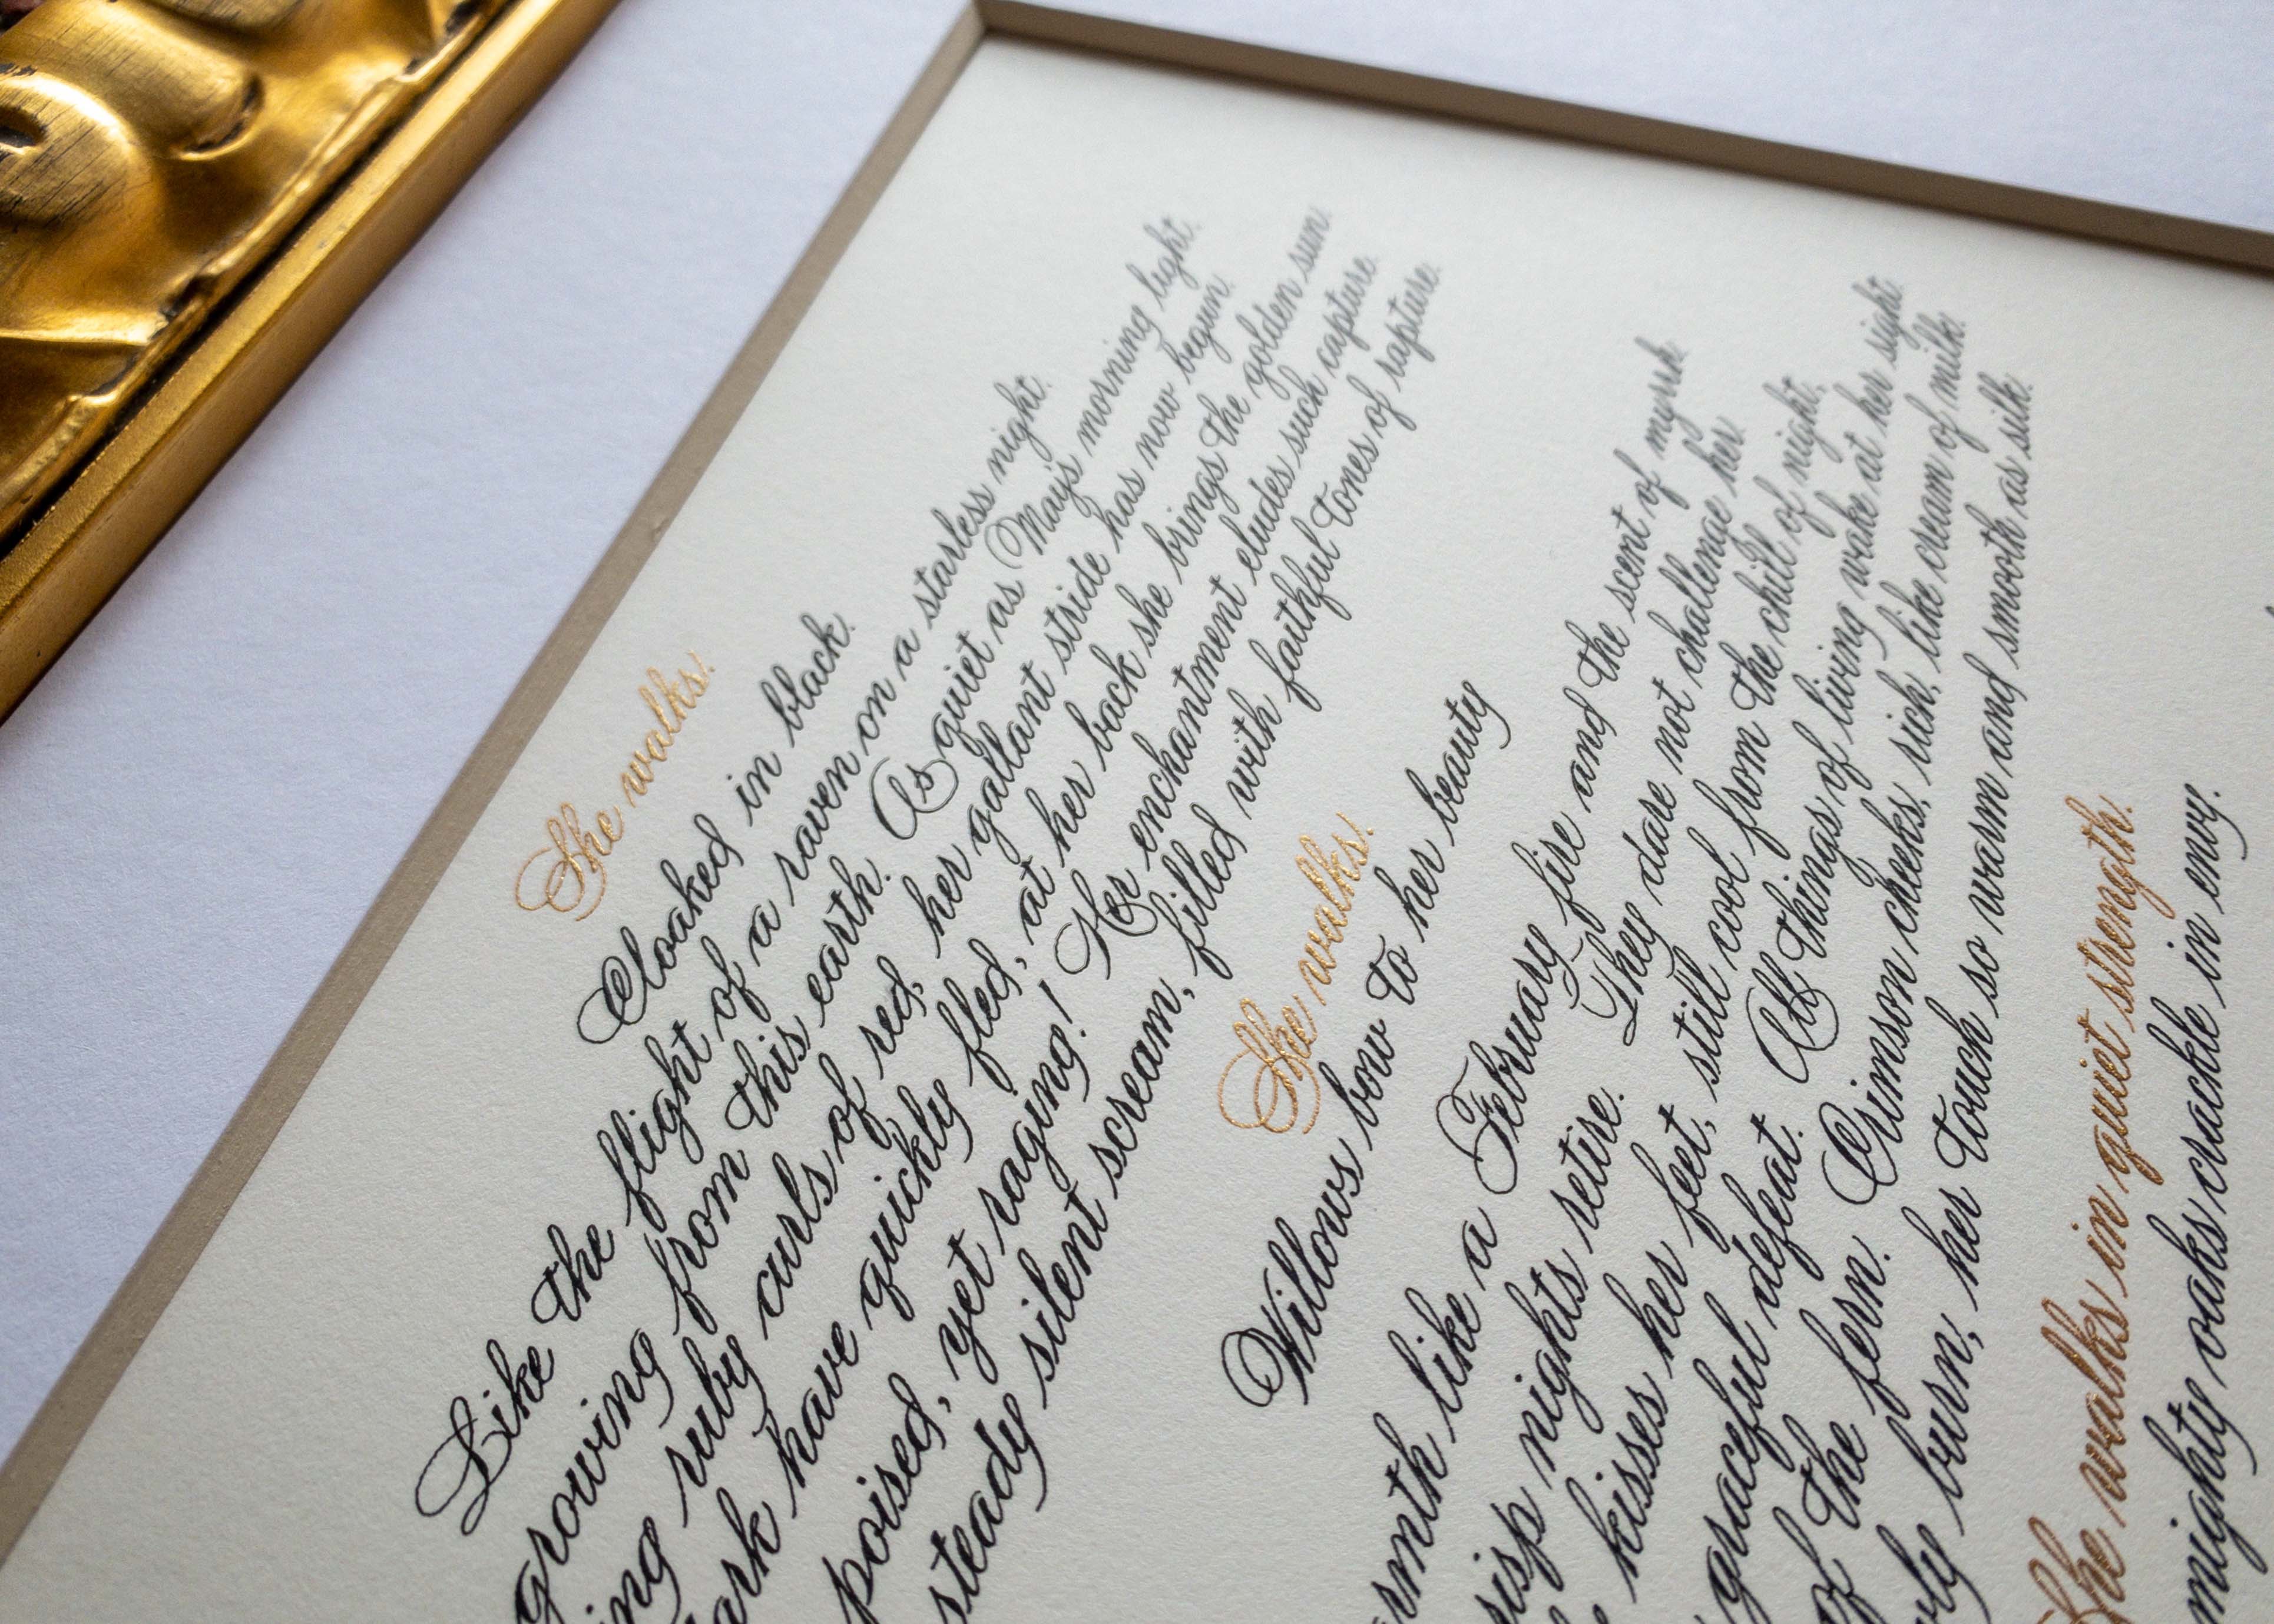 She walks.
Cloaked in black.
Like the flight of a raven on a starless night.
growing from this earth. As quiet as May's morning light.
ing ruby curls of red, her gallant stride has now begun.
ark have quickly fled, at her back she brings the golden sun.
poised, yet raging! Her enchantment eludes such capture.
steady silent scream, filled with faithful tones of rapture.
She walks.
Willows bow to her beauty
rmth like a February fire and the scent of myrrh
risp nights retire. They dare not challenge her.
kisses her feet, still cool from the chill of night.
graceful defeat. All things of living wake at her sight
of the fern. Crimson cheeks, rich, like cream of milk.
wly burn, her touch so warm and smooth as silk.
She walks in quiet strength.
mighty oaks crackle in envy.